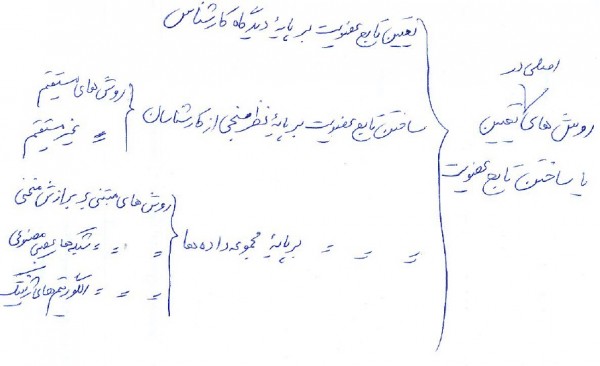 تعیین تابع عضویت بر پایهٔ دیدگاه کارشناس
اصلی در
روش های تعیین
یا ساختن تابع عضویت
ساختن تابع عضویت بر پایهٔ نظرسنجی از کارشناسان
روش های مستقیم
〃 غیر مستقیم
〃 〃 〃 بر پایهٔ مجموعه داده ها
روش های مبتنی بر برازش منحنی
〃 〃 〃 شبکه های عصبی مصنوعی
〃 〃 〃 الگوریتم های ژنتیک